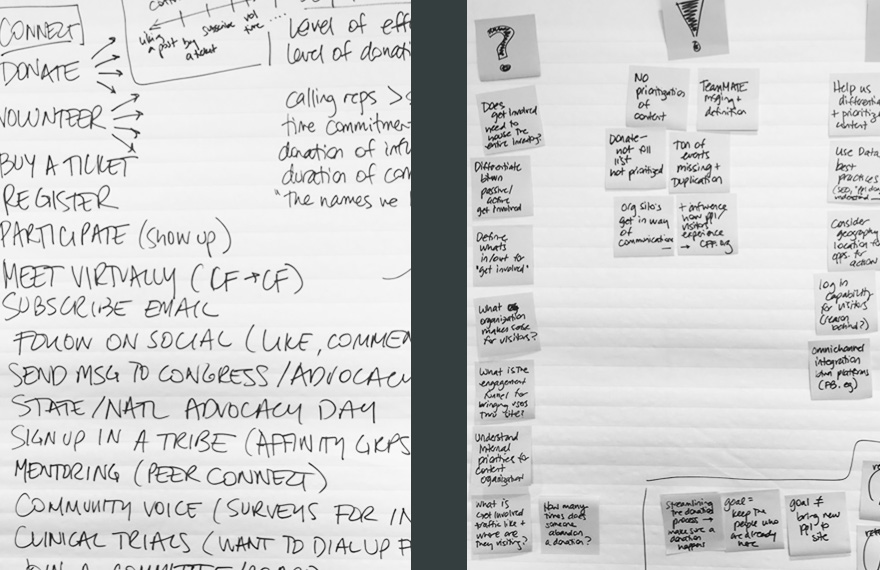 CONNECT
DONATE
VOLUNTEER
BUY A TICKET
REGISTER
PARTICIPATE (show up)
MEET VIRTUALLY (CF → CF)
SUBSCRIBE EMAIL
FOLLOW ON SOCIAL (LIKE, COMMEN
SEND MSG TO CONGRESS/ADVOCACY
STATE/NATL ADVOCACY DAY
SIGN UP IN A TRIBE (AFFINITY GRPS
MENTORING (PEER CONNECT)
COMMUNITY VOICE (SURVEYS FOR IN
CLINICAL TRIALS (WANT TO DIAL UP
liking
a post
by
a ticket
subscribe
vol
time
....
Level of eff
level of donati
calling reps >
time commitmen
donation of infl
duration of com
"the names we
?
Does
get Involved
need to
house the
entire inventory?
Differentiate
btwn
passive/
active
get involved
Define
whats
in/out for
"get involved"
What
organization
makes sense
for visitors?
What is the
engagement
funnel for
bringing users
thru site?
Understand
Internal
priorities for
content
organization
What is
Get Involved
traffic like +
where are
they visiting?
How many
times does
someone
abandon
a donation?
!
No
prioritization
of
content
TeamMATE
missing +
definition
Donate—
not full
list
not prioritized
TON of
events
missing +
Duplication
Org silo's
get in way
of
communication
+ influence
how ppl/
visitors
experience
→ CFF.org
Help us
differentia
+ prioritiz
content
Use Data
best
practices
Consider
geography
location for
opps. for
action
log in
capability
for visitors
(reason
behind?)
omnichannel
integration
btwn platforms
(FB, eg)
Streamlining
the donation
process →
make sure a
donation
happens
goal =
keep the
people who
are already
here
goal ≠
bring new
ppl to
site